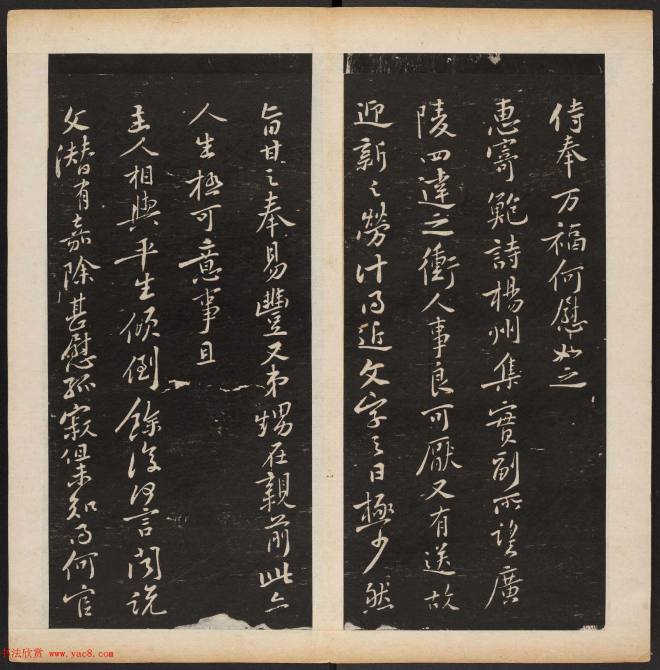 侍奉万福何慰如之
惠寄鲍詩楊州集實副所望廣
陵四達之衝人事良可厭又有送故
迎新之勞計得近文字之日極少然
旨甘之奉易豐又弟甥在親前此亦
人生極可意事且
主人相與平生傾倒餘復何言聞說
文潛有嘉除甚慰孤寂但未知得何官
书法欣赏 www.yac8.com